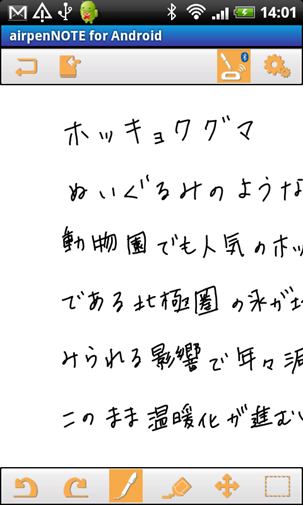 14:01
airpenNOTE for Android
ホッキョクグマ
ぬいぐるみのような
動物園でも人気のホッ
である北極圏の氷が
みられる影響で年々
このまま温暖化が進む